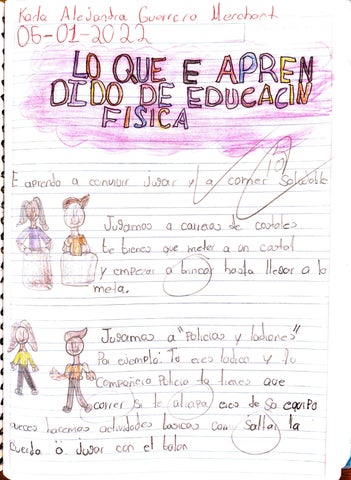 Karla Alejandra Guerrero Merchant
06-01-2022
LO QUE E APREN
DIDO DE EDUCACIN
FISICA
10
E aprendo a convivir Jugar y a comer Saludable
Jugamos a carreras de costales
te tienes que meter a un costal
y empezar a brincar hasta llegar a la
meta.
Jugamos a "Policias y ladrones"
Por ejemplo: Tu eres ladron y tu
Compañero Policia tu tienes que
correr si te atrapa eres de so equipo
aveces hacemos actividades basicas com Saltar la
cuerda o Jugar con el balon